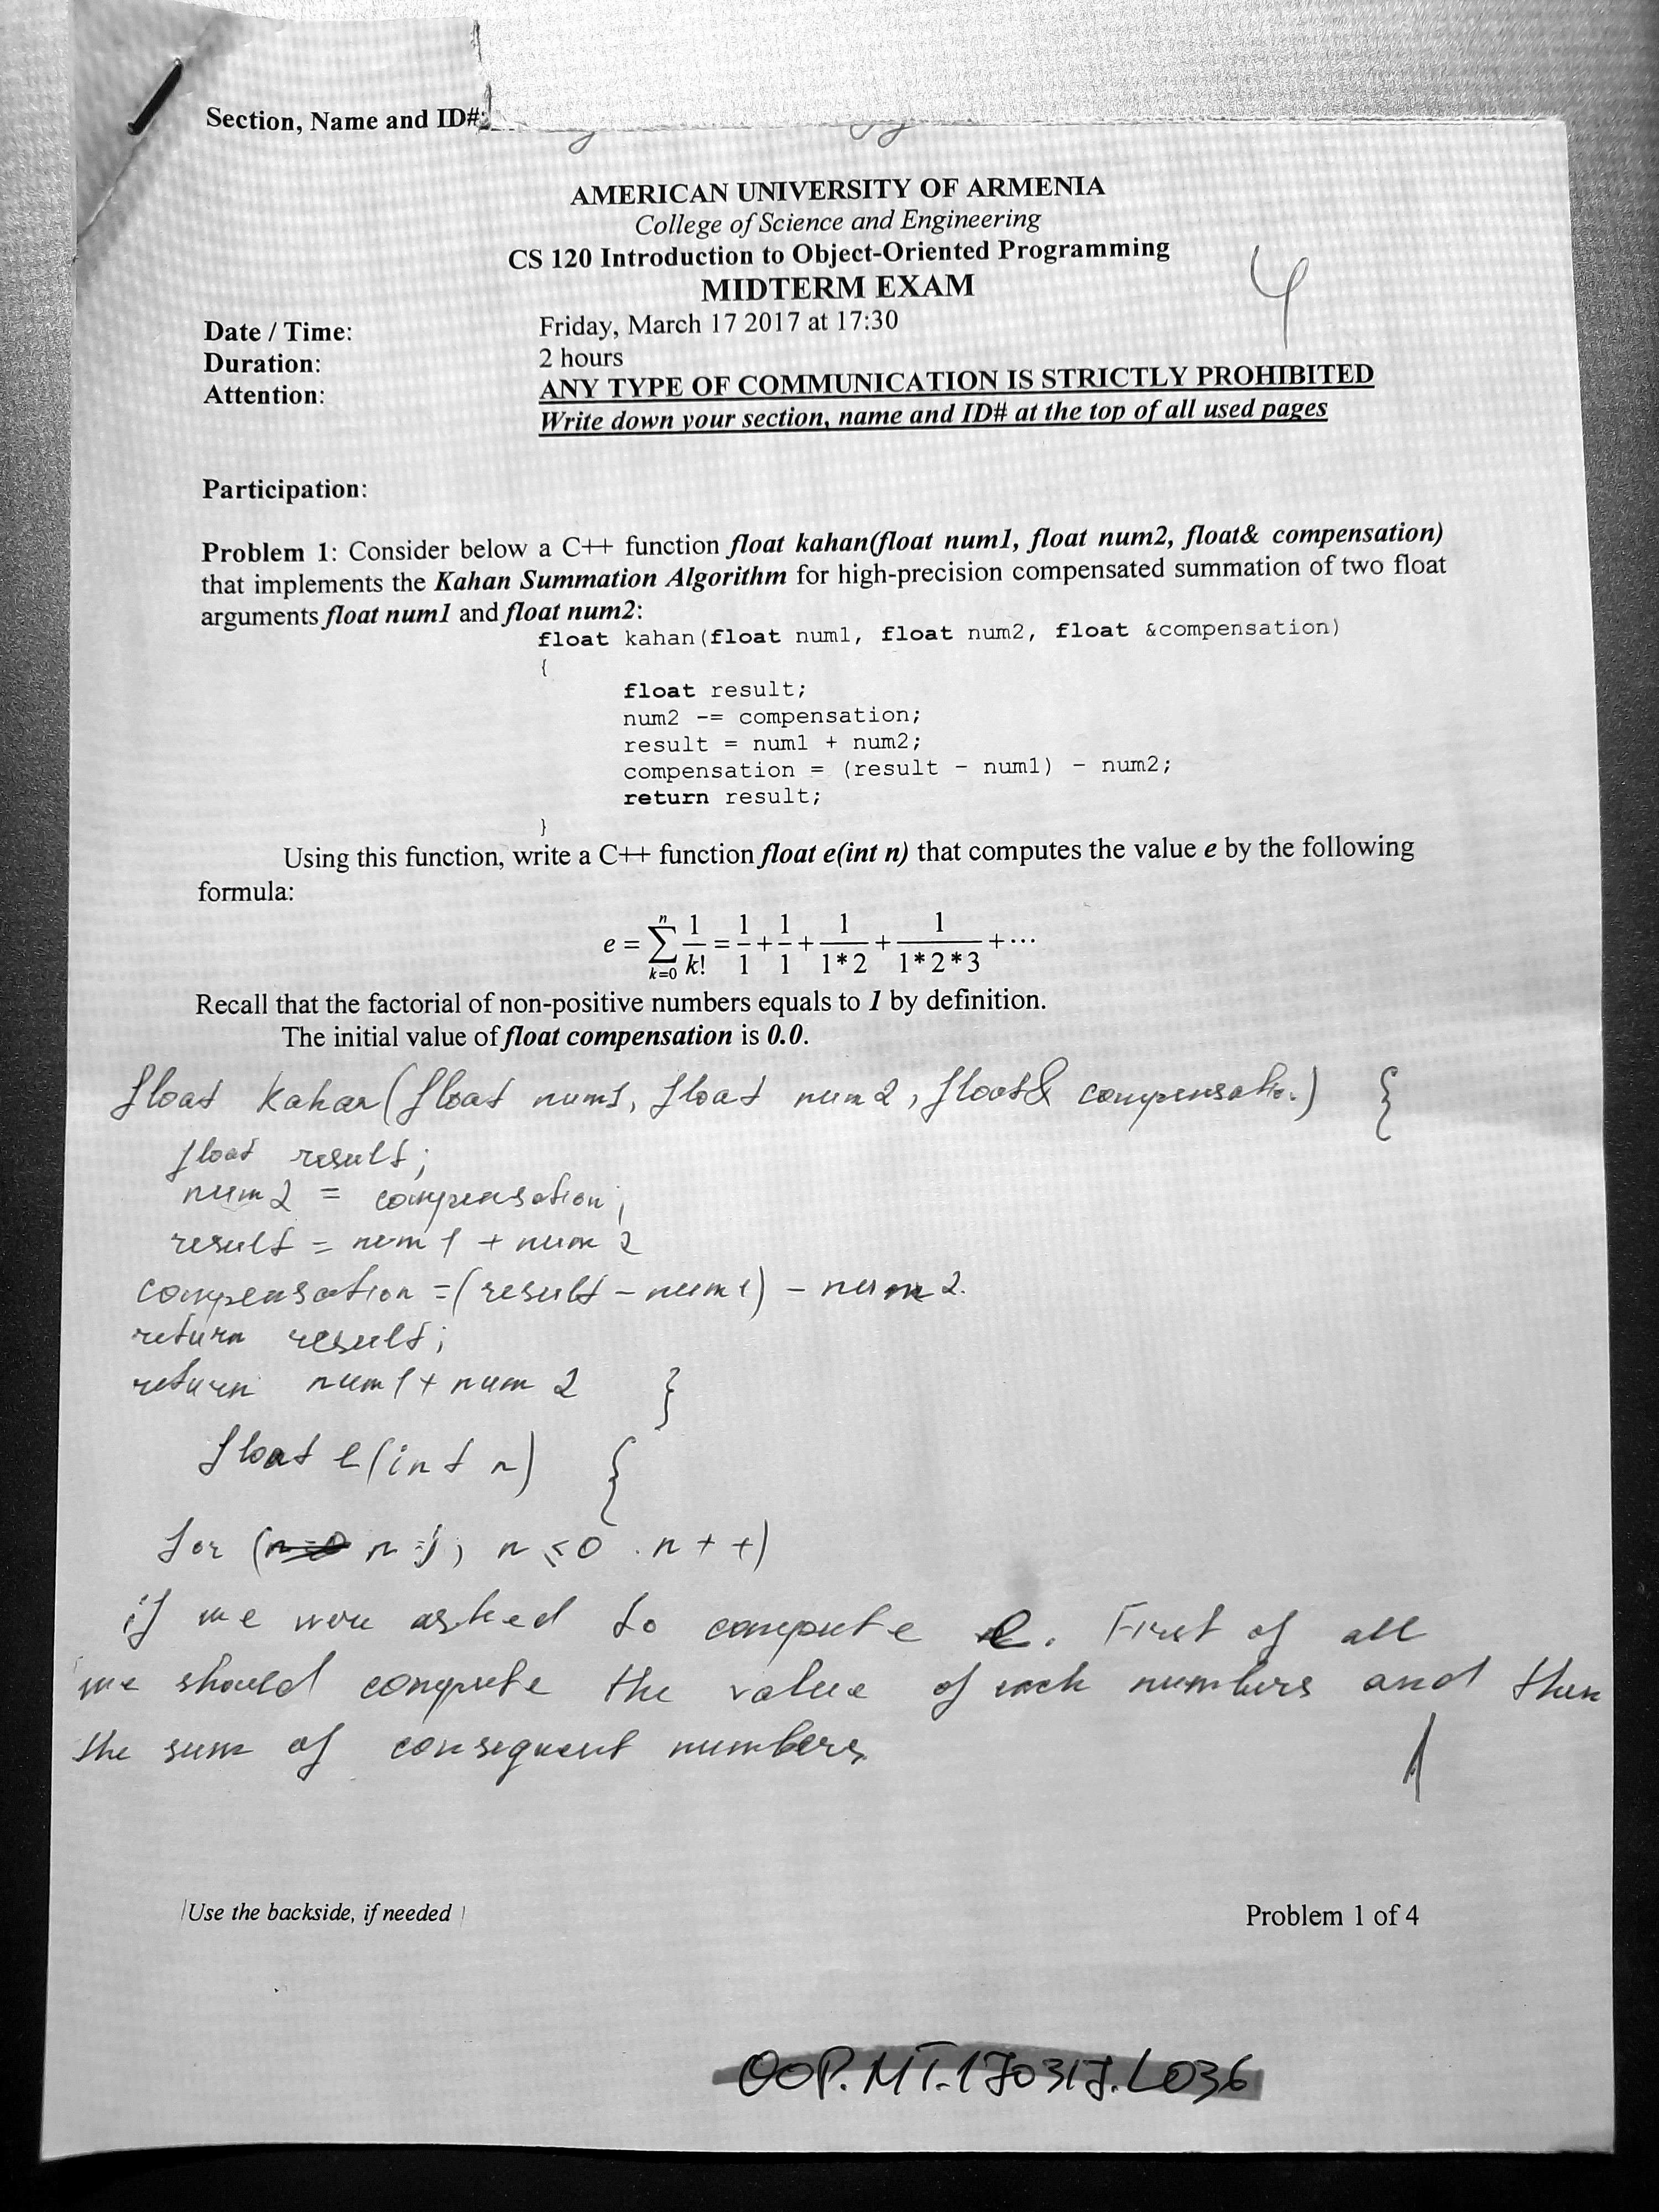 Section, Name and ID#:
AMERICAN UNIVERSITY OF ARMENIA
College of Science and Engineering
CS 120 Introduction to Object-Oriented Programming
MIDTERM EXAM
4
Date / Time: Friday, March 17 2017 at 17:30
Duration: 2 hours
Attention: ANY TYPE OF COMMUNICATION IS STRICTLY PROHIBITED
Write down your section, name and ID# at the top of all used pages
Participation:
Problem 1: Consider below a C++ function float kahan(float num1, float num2, float& compensation)
that implements the Kahan Summation Algorithm for high-precision compensated summation of two float
arguments float num1 and float num2:
float kahan(float num1, float num2, float &compensation)
{
float result;
num2 -= compensation;
result = num1 + num2;
compensation = (result - num1) - num2;
return result;
}
Using this function, write a C++ function float e(int n) that computes the value e by the following
formula:
e = ∑_{k=0}^{n} 1/k! = 1/1 + 1/1 + 1/(1*2) + 1/(1*2*3) + ...
Recall that the factorial of non-positive numbers equals to 1 by definition.
The initial value of float compensation is 0.0.
float kahan(float num1, float num2, float& compensation) {
float result;
num2 = compensation;
result = num1 + num2
compensation = (result - num1) - num2.
return result;
return num1 + num2 }
float e(int n) {
for ( n = ; n ≤ 0 . n++)
if we were asked to compute e. First of all
we should compute the value of each numbers and then
the sum of consequent numbers.
1
Use the backside, if needed
Problem 1 of 4
OOP.MT.170317.L036